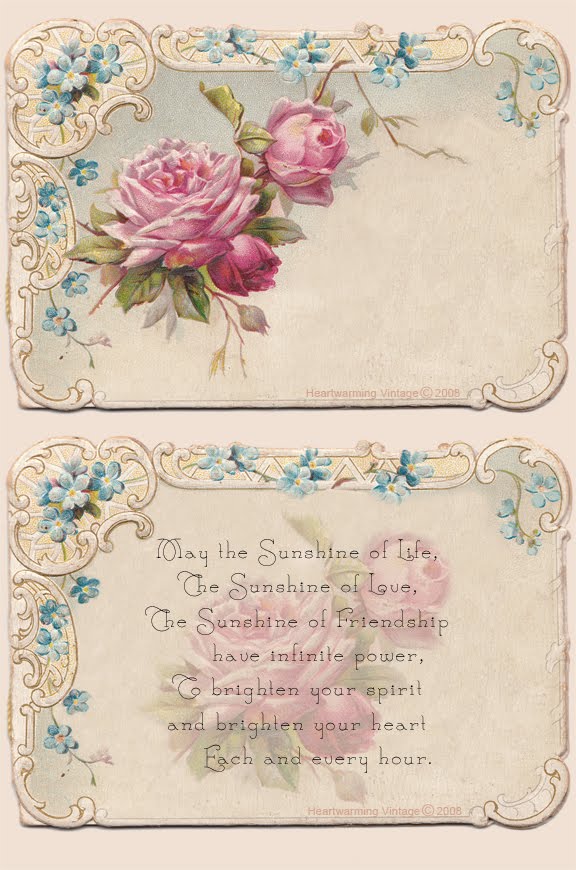 Heartwarming Vintage © 2008
May the Sunshine of Life,
The Sunshine of Love,
The Sunshine of Friendship
have infinite power,
To brighten your spirit
and brighten your heart
Each and every hour.
Heartwarming Vintage © 2008